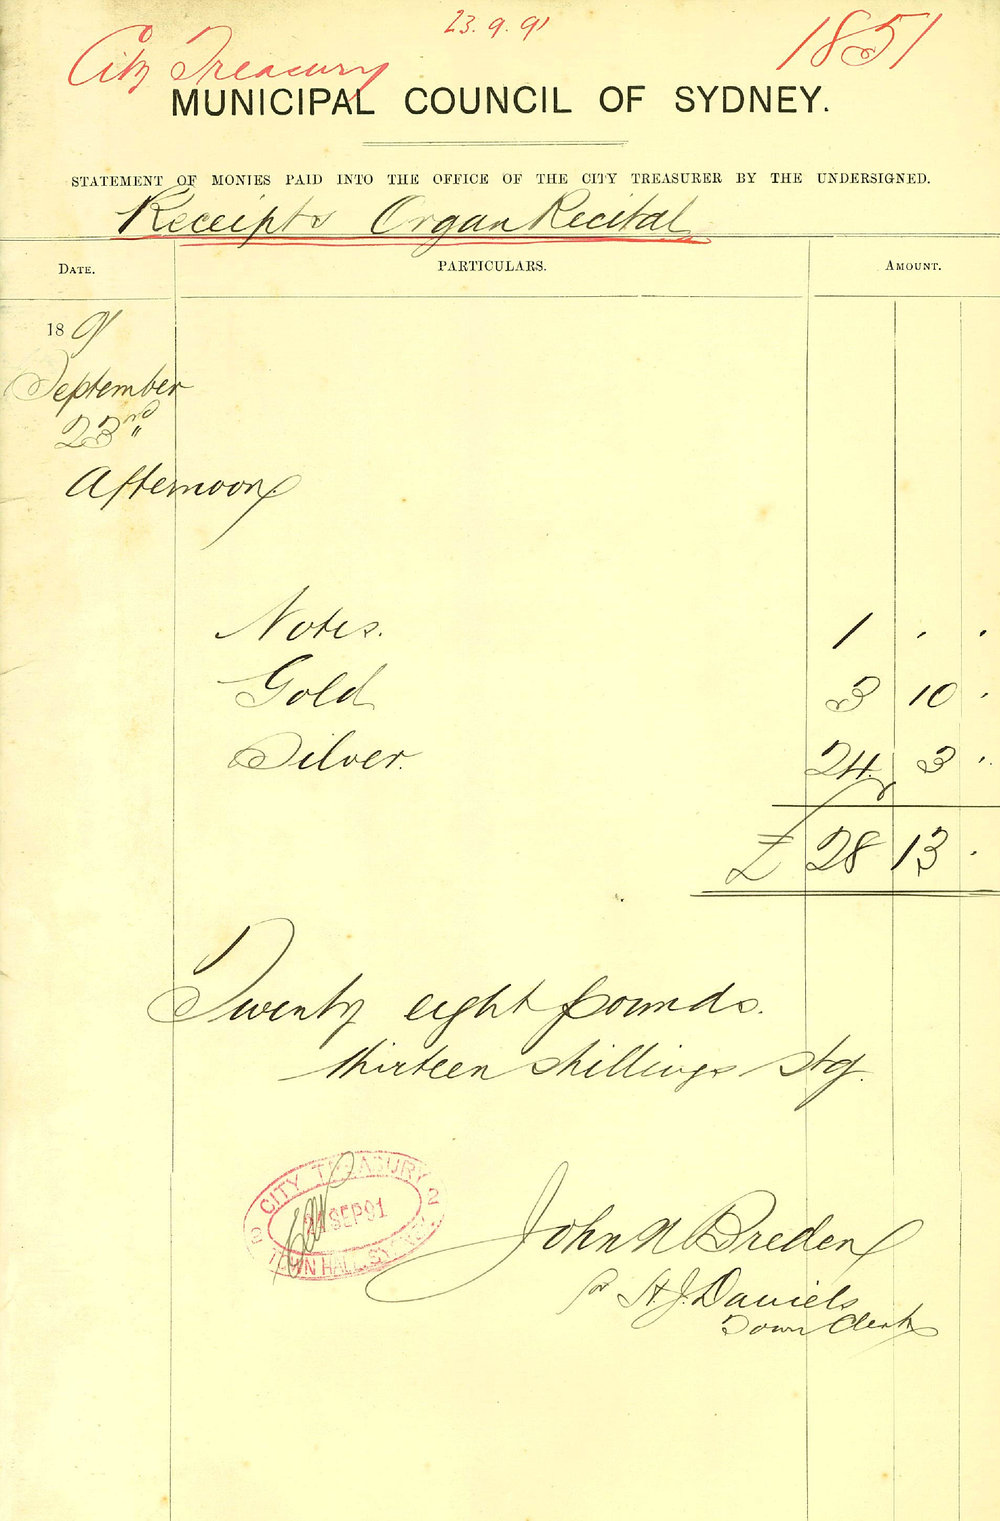 23.9.91
1851
City Treasury
MUNICIPAL COUNCIL OF SYDNEY.
STATEMENT OF MONIES PAID INTO THE OFFICE OF THE CITY TREASURER BY THE UNDERSIGNED.
Receipts Organ Recital
DATE. PARTICULARS. AMOUNT.
1891
September
23rd "
Afternoon
Notes. 1 . .
Gold 3 10 .
Silver. 24 3 .
£ 28 13 .
Twenty eight pounds.
thirteen shillings stg.
CITY TREASURY
2 SEP 91 2
TOWN HALL, SYDNEY
John N Breden
pr H.J. Daniels
Town Clerk